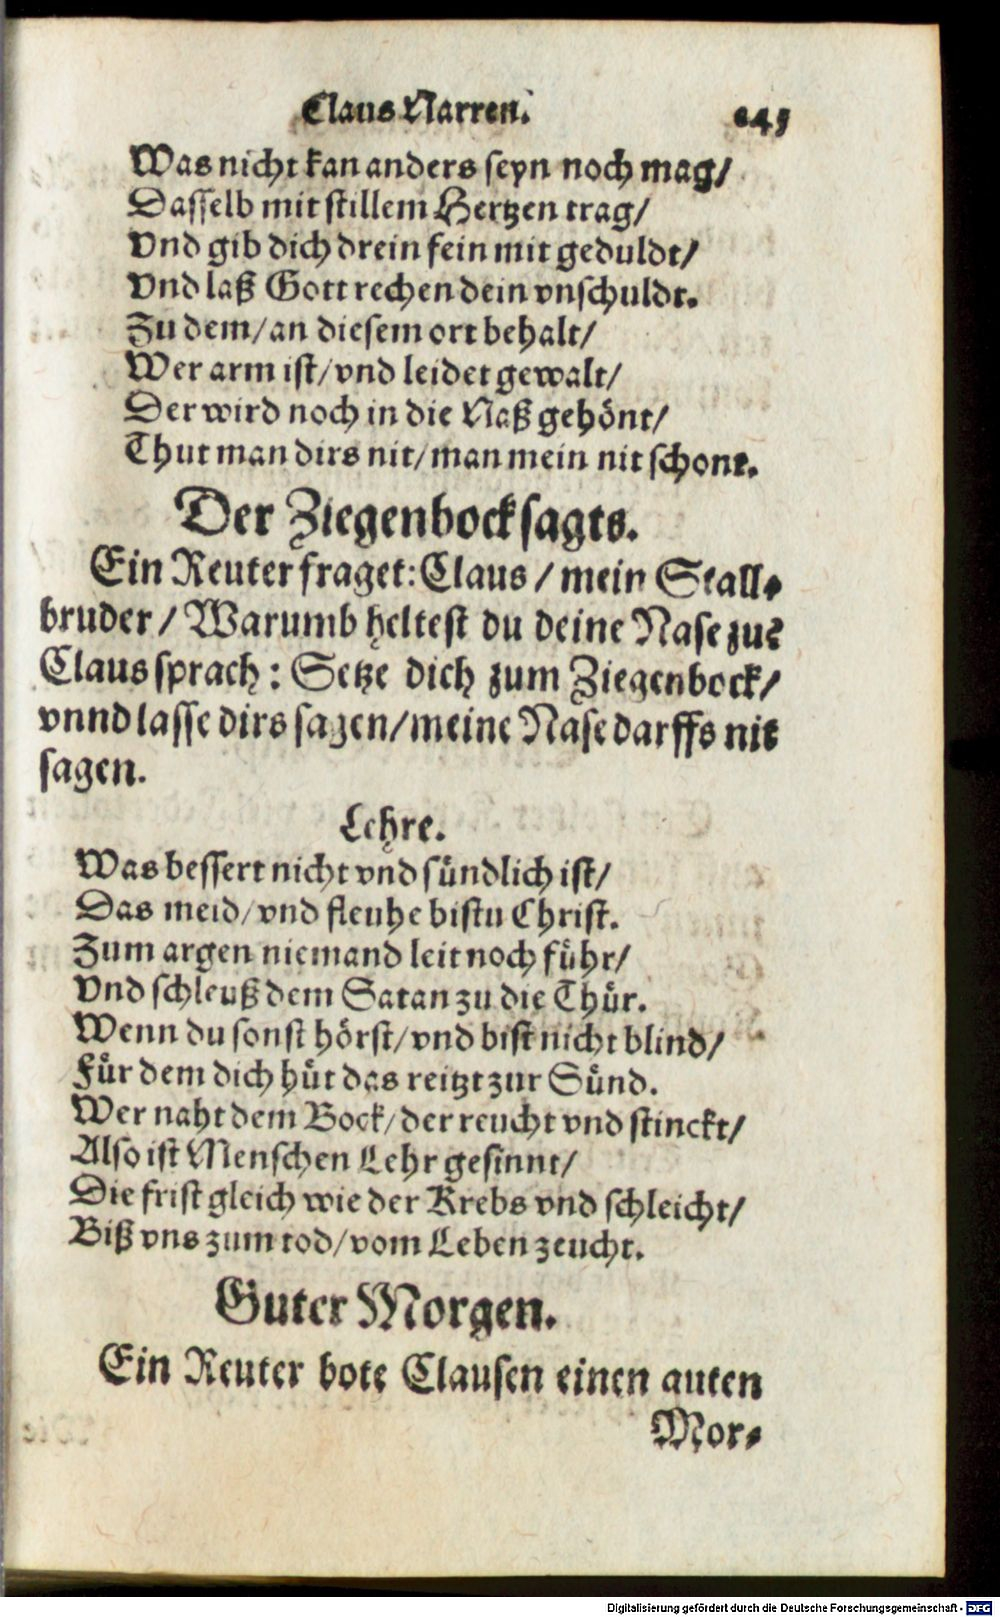 Claus Narren. 245
Was nicht kan anders seyn noch mag/
Dasselb mit stillem Hertzen trag/
Vnd gib dich drein fein mit geduldt/
Vnd laß Gott rechen dein vnschuldt.
Zu dem/ an diesem ort behalt/
Wer arm ist/ vnd leidet gewalt/
Der wird noch in die Naß gehönt/
Thut man dirs nit/ man mein nit schont.
Der Ziegenbock sagts.
Ein Reuter fraget: Claus / mein Stall-
bruder / Warumb heltest du deine Nase zu?
Claus sprach: Setze dich zum Ziegenbock/
vnnd lasse dirs sagen/ meine Nase darffs nit
sagen.
Lehre.
Was bessert nicht vnd sündlich ist/
Das meid/ vnd fleuhe bistu Christ.
Zum argen niemand leit noch führ/
Vnd schleuß dem Satan zu die Thür.
Wenn du sonst hörst/ vnd bist nicht blind/
Für dem dich hüt das reitzt zur Sünd.
Wer naht dem Bock/ der reucht vnd stinckt/
Also ist Menschen Lehr gesinnt/
Die frist gleich wie der Krebs vnd schleicht/
Biß vns zum tod/ vom Leben zeucht.
Guter Morgen.
Ein Reuter bote Clausen einen guten
Mor-
Digitalisierung gefördert durch die Deutsche Forschungsgemeinschaft - DFG